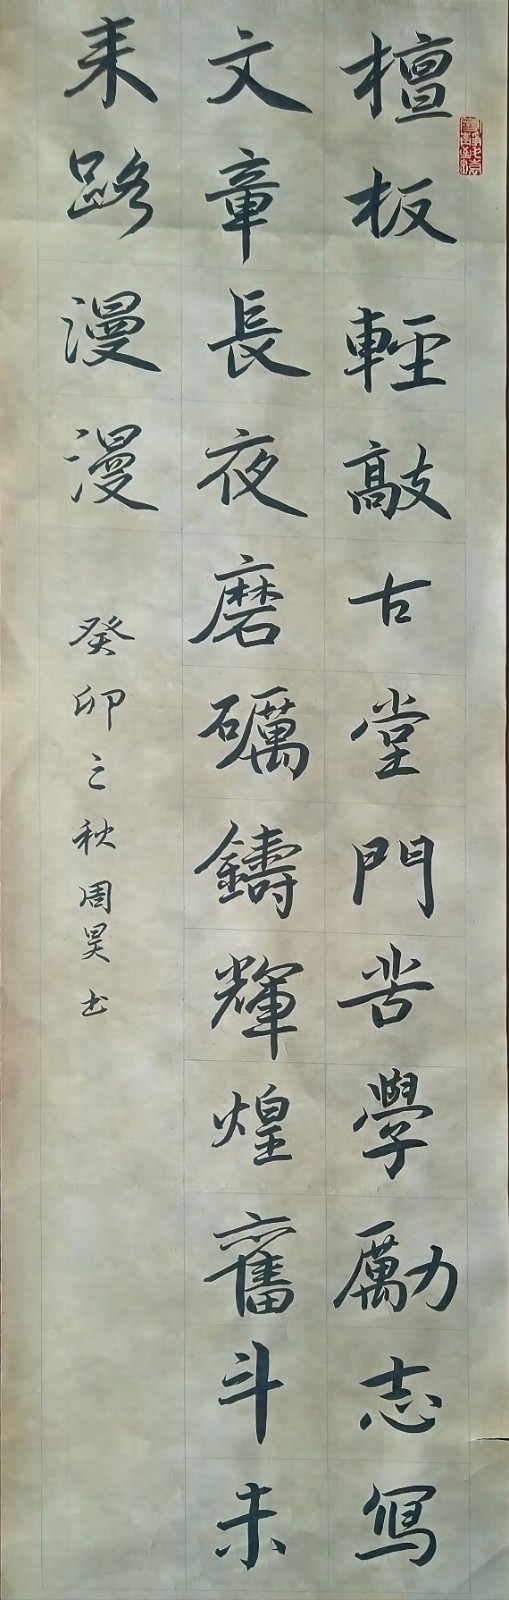 檀板輕敲古堂門苦學勵志寫
文章長夜磨礪鑄輝煌奮斗未
来路漫漫
癸卯之秋周昊书